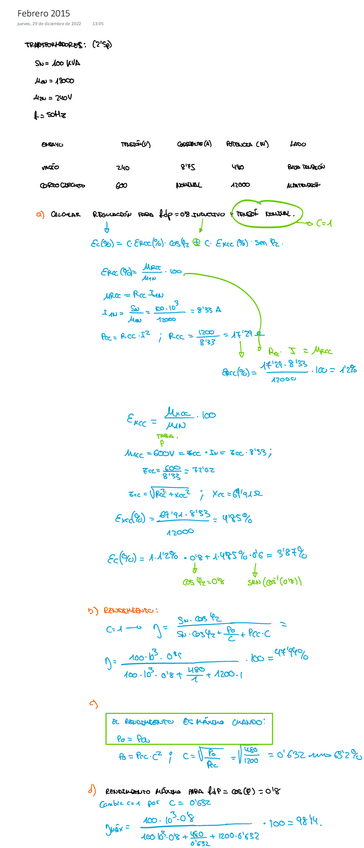 Febrero 2015
jueves, 29 de diciembre de 2022 13:05
TRANSFORMADORES: (2'5p)
SN = 100 KVA
M1N = 12000
M2N = 240V
f = 50Hz
ENSAYO TENSIÓN(V) CORRIENTE(A) POTENCIA (W) LADO
VACÍO 240 8'75 480 BAJA TENSIÓN
CORTOCIRCUITO 600 NOMINAL 1200 ALTA TENSIÓN
a) CALCULAR REGULACIÓN PARA fdp=0'8 INDUCTIVO Y TENSIÓN NOMINAL.
C=1
Ec(%) = C·ERcc(%)·cosφ2 ⊕ C·EXcc(%)·senφ2.
ERcc(%) = MRcc / M1N · 100
MRcc = Rcc I1N
I1N = SN / M1N = 100·10³ / 12000 = 8'33 A
Pcc = Rcc·I² ; Rcc = 1200 / 8'33 = 17'29 Ω
Rcc · I = MRcc
ERcc(%) = 17'29 · 8'33 / 12000 · 100 = 1'2%
EXcc = MXcc / M1N · 100
Mcc = 600V = Zcc · IN = Zcc · 8'33;
Zcc = 600 / 8'33 = 72'02
Zcc = √Rcc² + Xcc² ; Xcc = 69'91Ω
EXcc(%) = 69'91 · 8'33 / 12000 = 4'85%
Ec(%) = 1·1'2% · 0'8 + 1·4'85%·0'6 = 3'87%
cosφ2=0'8 SEN(cos⁻¹(0'8))
b) RENDIMIENTO:
C=1 → η = SN·cosφ2 / SN·cosφ2 + P0/C + Pcc·C =
η = 100·10³·0'8 / 100·10³·0'8 + 480/1 + 1200·1 · 100 = 97'94%
c)
EL RENDIMIENTO ES MÁXIMO CUANDO:
P0 = PCu
P0 = Pcc·C² ; C = √P0/Pcc = √480/1200 = 0'632 → 63'2%
d) RENDIMIENTO MÁXIMO PARA fdP = cos(φ) = 0'8
Cambia C=1 por C = 0'632
ηmáx = 100·10³·0'8 / 100·10³·0'8 + 480/0'632 + 1200·0'632 · 100 = 98'14.